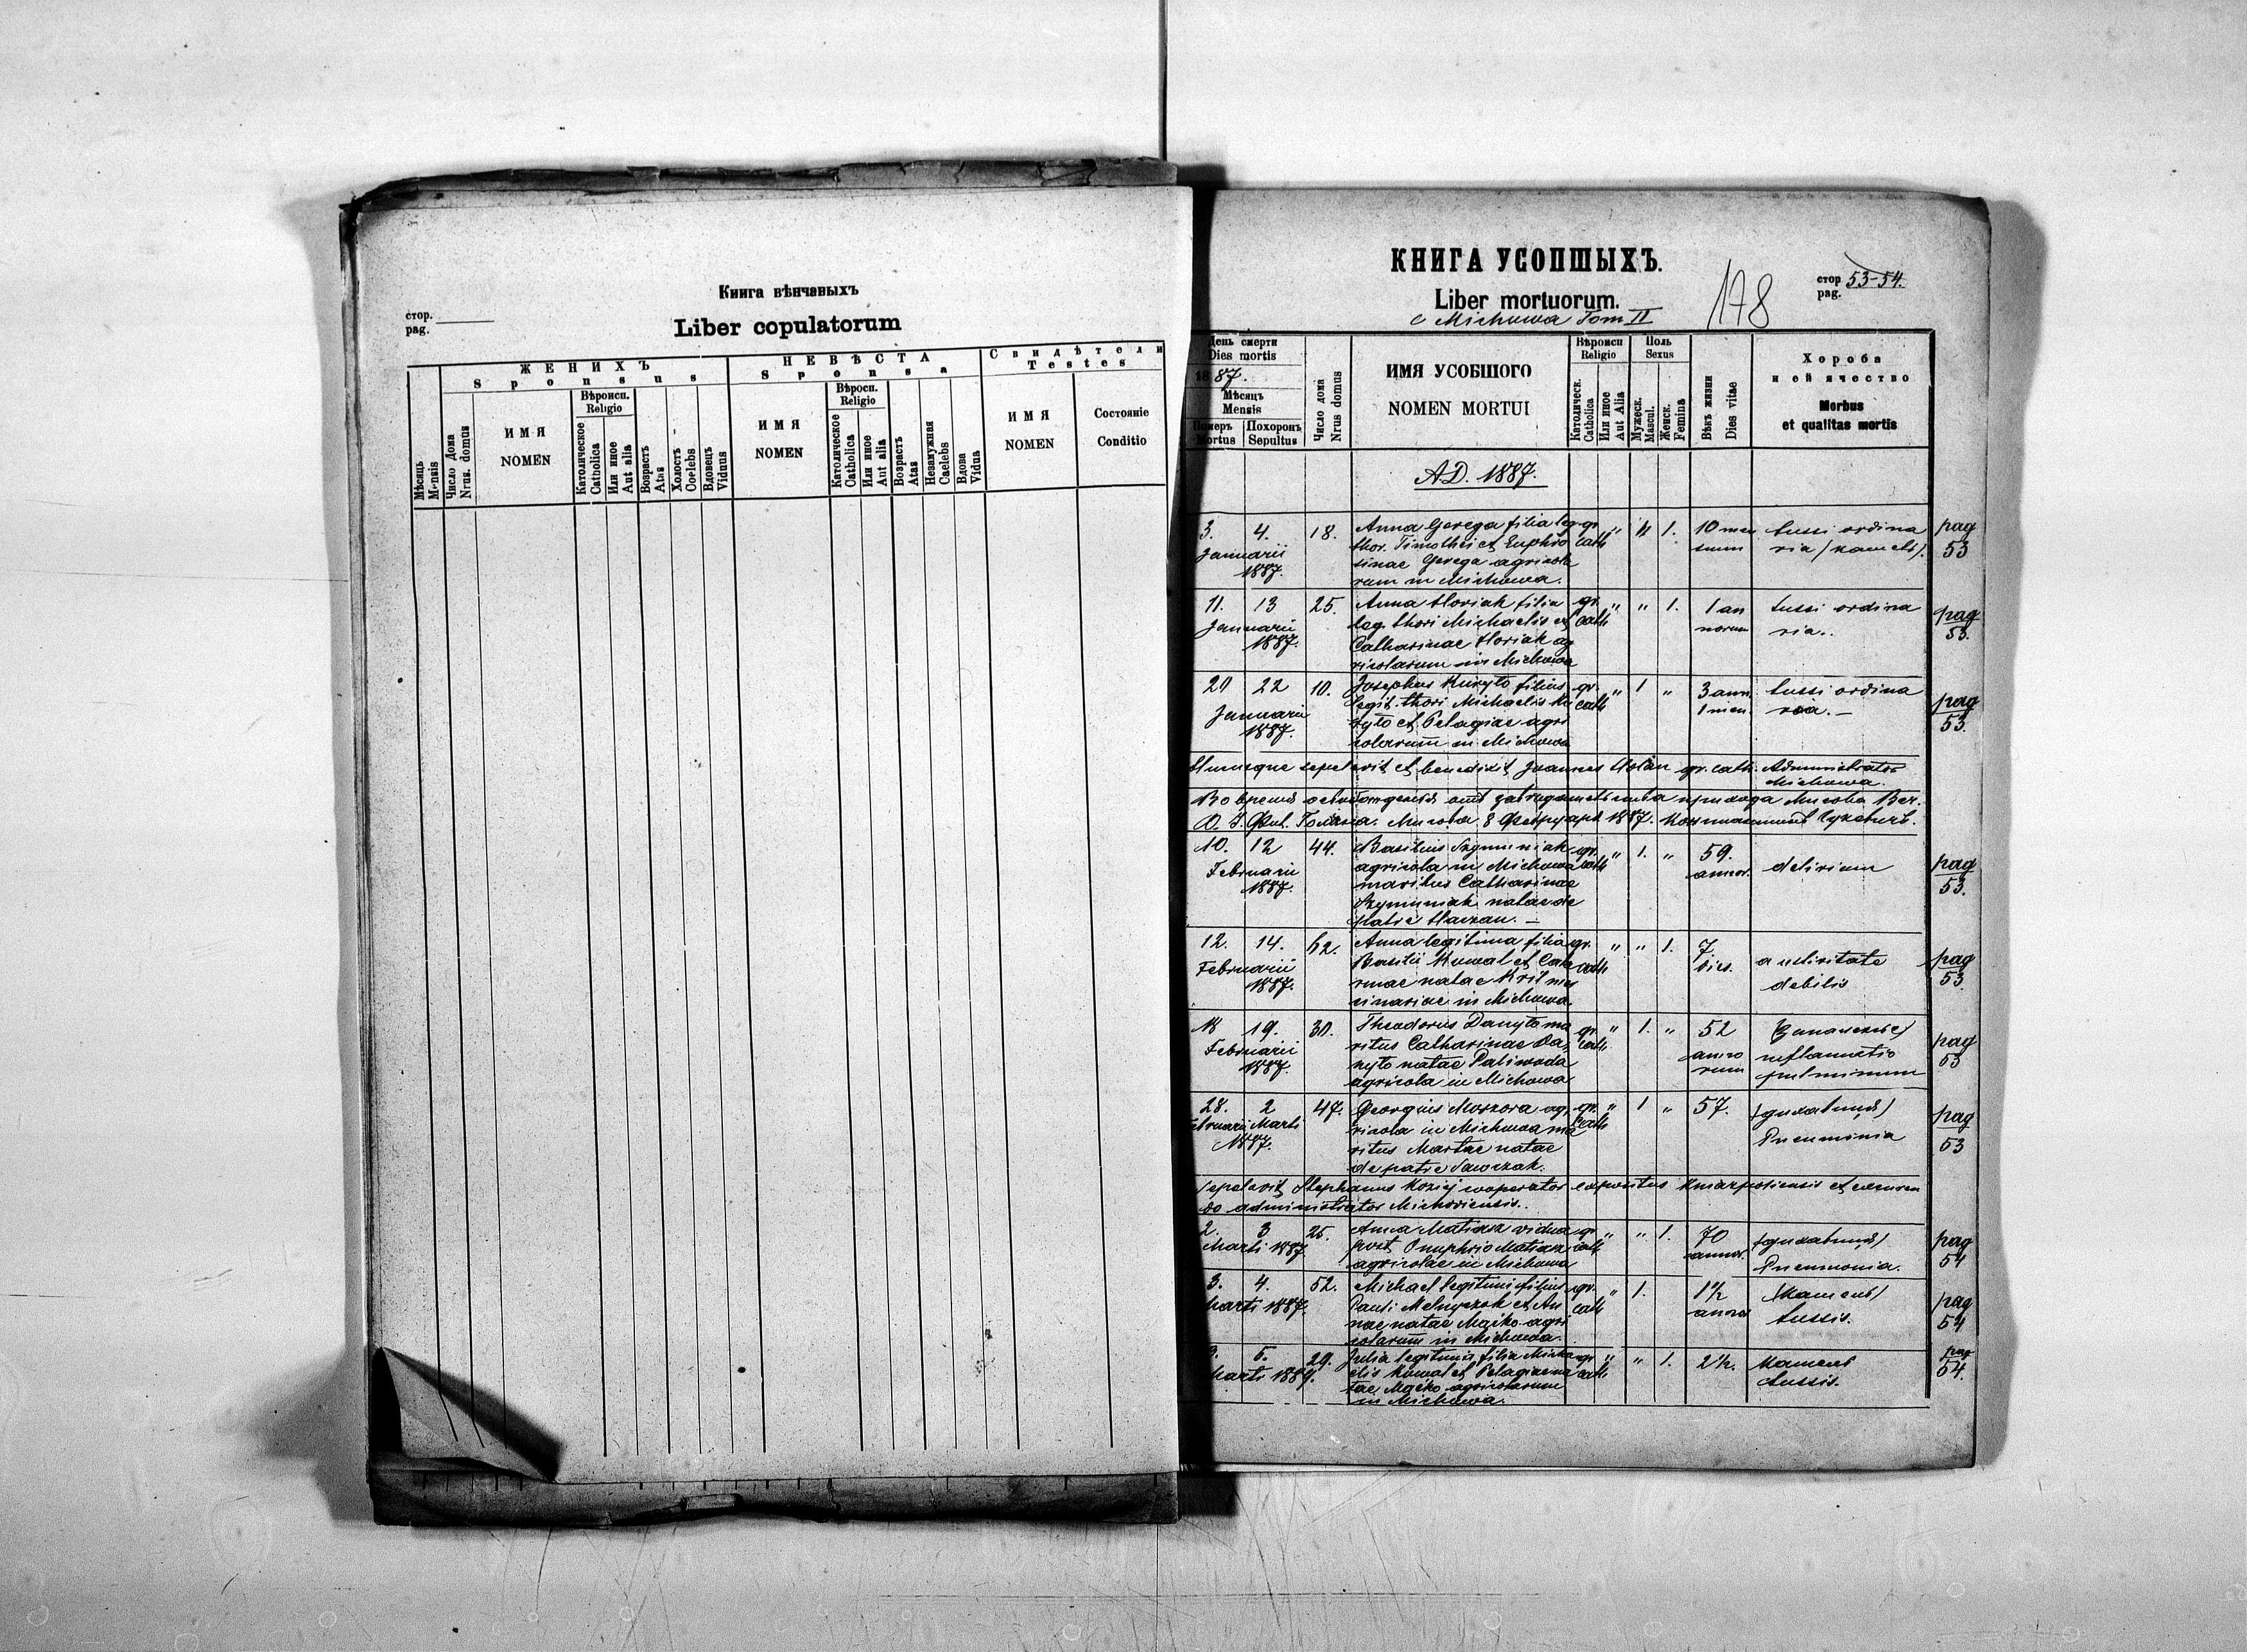 Книга вѣнчавыхъ
стор.
pag.
Liber copulatorum
ЖЕНИХЪ
Sponsus
НЕВѢСТА
Sponsa
Свидѣтели
Testes
Мѣсяць
Mensis
Число Дома
Nrus. domus
ИМЯ
NOMEN
Вѣроисп.
Religio
Католическое
Catholica
Или иное
Aut alia
Возрастъ
Atas
Холостъ
Coelebs
Вдовець
Viduus
ИМЯ
NOMEN
Вѣросп.
Religio
Католическое
Catholica
Или иное
Aut alia
Возрастъ
Atas
Незамужная
Caelebs
Вдова
Vidua
ИМЯ
NOMEN
Состояніе
Conditio
КНИГА УСОПШЫХЪ.
Liber mortuorum.
e Michowa Tom II
178
стор 53-54.
pag.
День смерти
Dies mortis
1887.
Мѣсяцъ
Mensis
Померъ
Mortus
Похоронъ
Sepultus
Число дома
Nrus domus
ИМЯ УСОБШОГО
NOMEN MORTUI
Вѣроисп
Religio
Католическ.
Catholica
Или иное
Aut Alia
Поль
Sexus
Мужеск.
Mascul.
Женск.
Femina
Вѣкъ жизни
Dies vitae
Хороба
и ей ячество
Morbus
et qualitas mortis
A.D. 1887.
3. 4. 18. Anna Gerega filia leg. gr. " " 1. 10 men tussi ordina pag
thor. Timothei et Euphro cath sium ria (кашель). 53
Januarii sinae Gerega agricola
1887. rum in Michowa.
11. 13 25. Anna Horiak filia gr. " " 1. 1 an tussi ordina pag
Januarii leg. thori Michaelis et cath norum ria.. 53.
1887. Catharinae Horiak ag
ricolarum in Michowa
20 22 10. Josephus Kuryto filius gr. " 1 " 3 ann. tussi ordina pag
Januarii legit. thori Michaelis Ku cath 1 men. ria. — 53.
1887. ryto et Pelagiae agri
colarum in Michowa
Hunc sepelivit et benedixit Joannes Holan gr. cath. Administrator
Michowa.
О. І. Фил. Голяна. Мигова 8 Фебруарія 1887.
10. 12 44. Basilius Szyminiak gr. " 1. " 59. delirium pag
Februarii agricola in Michowa cath annor. 53.
1887. maritus Catharinae
Szyminiak natae de
patre Haczan. —
12. 14. 62. Anna legitima filia gr. " " 1. 7 pag
Februarii Basilii Kuwal et Cath cath dies. debilis 53
1887. rinae natae Kril mer
cinariae in Michowa.
18 19. 30. Theodorus Danyto ma gr. " 1. " 52 pag
Februarii ritus Catharinae Da cath anno inflammatio 53
1887. nyto natae Paliwoda rum pulminum
agricola in Michowa
28. 2 47. Georgius Moskora ag gr. " 1 " 57. pag
Februarii Marti ricola in Michowa ma cath Pneuminia 53
1887. ritus Martae natae
de patre Sawczak.
Sepelivit Stephanus Koziej cooperator expositus et excurren
do administrator Michoviensis..
2. 3 25. Anna Matiasz vidua gr. " " 1. 70 pag
Marti 1887 post Onuphrio Matiasz cath annor. Pneumonia. 54
agricolae in Michowa
3. 4. 52. Michael legitimi filius gr. " 1. 1½ (кашель) pag
Marti 1887. Pauli Melnyczok et An cath annor tussis. 54
nae natae Majko agri
colarum in Michowa.
3. 5. 29. Julia legitimis filia Micha gr " " 1. 2½. кашель pag
Marti 1887. elis Kuwal et Pelagiae na cath tussis. 54.
tae Majko agricolarum
in Michowa.